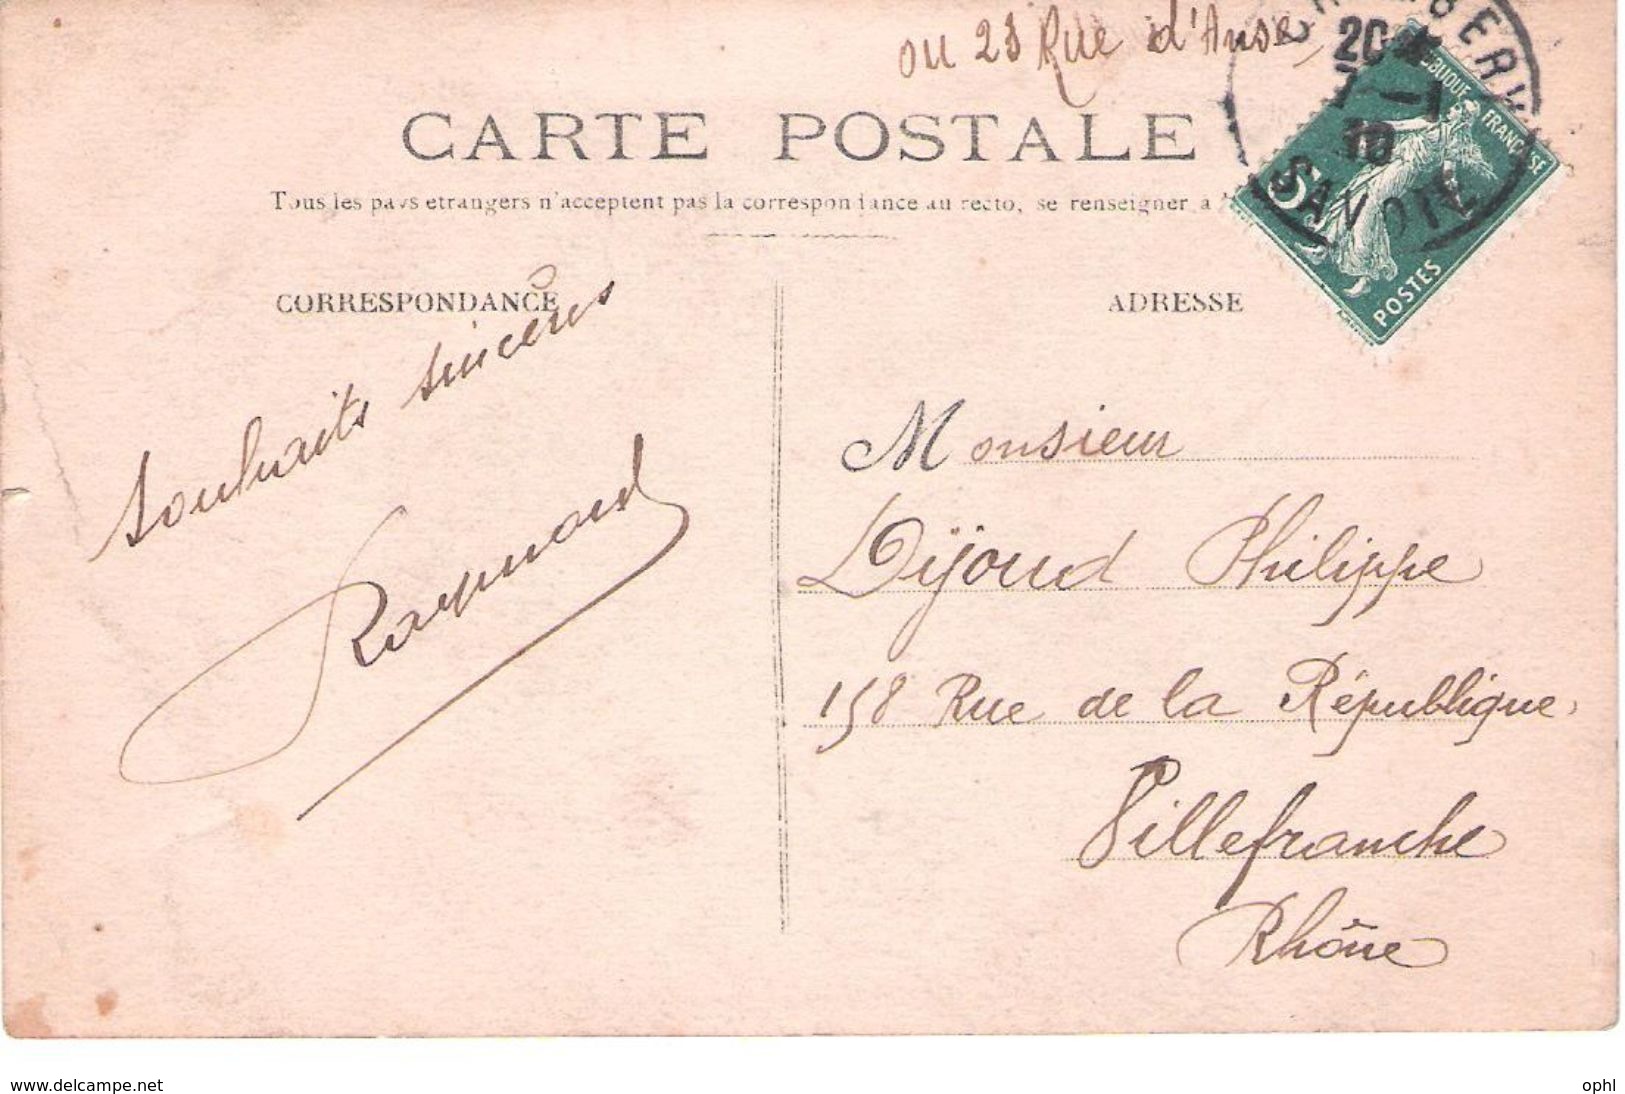 ou 23 Rue d'Anse
CARTE POSTALE
Tous les pays etrangers n'acceptent pas la correspondance au recto, se renseigner à
20
7 - 1
10
SAVOIE
RÉPUBLIQUE FRANÇAISE
5c
POSTES
CORRESPONDANCE
ADRESSE
Souhaits sincères
Raymond
Monsieur
Dijoud Philippe
158 Rue de la République
Villefranche
Rhône
www.delcampe.net
ophl